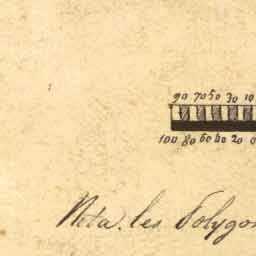 90 70 50 30 10
100 80 60 40 20 0
Nota. les Polygon